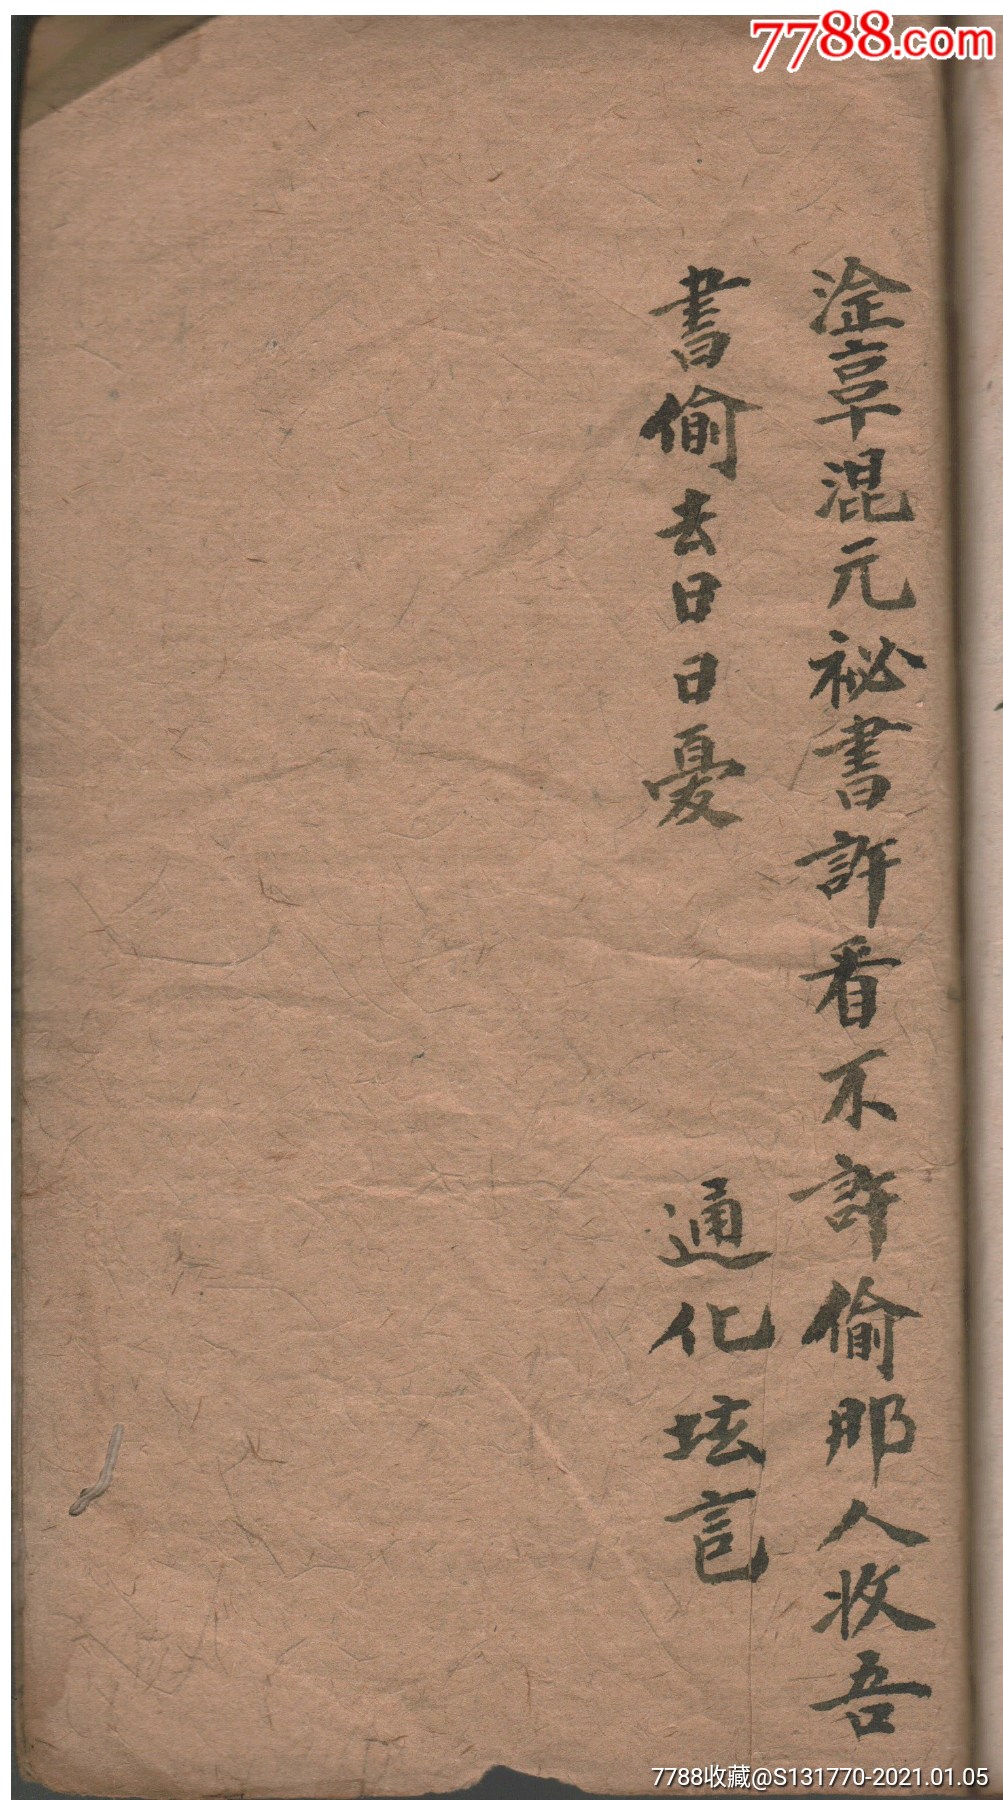 7788.com
混元祕書許看不許偷那人收吾
書偷去日日憂 通化坛
7788收藏@S131770-2021.01.05